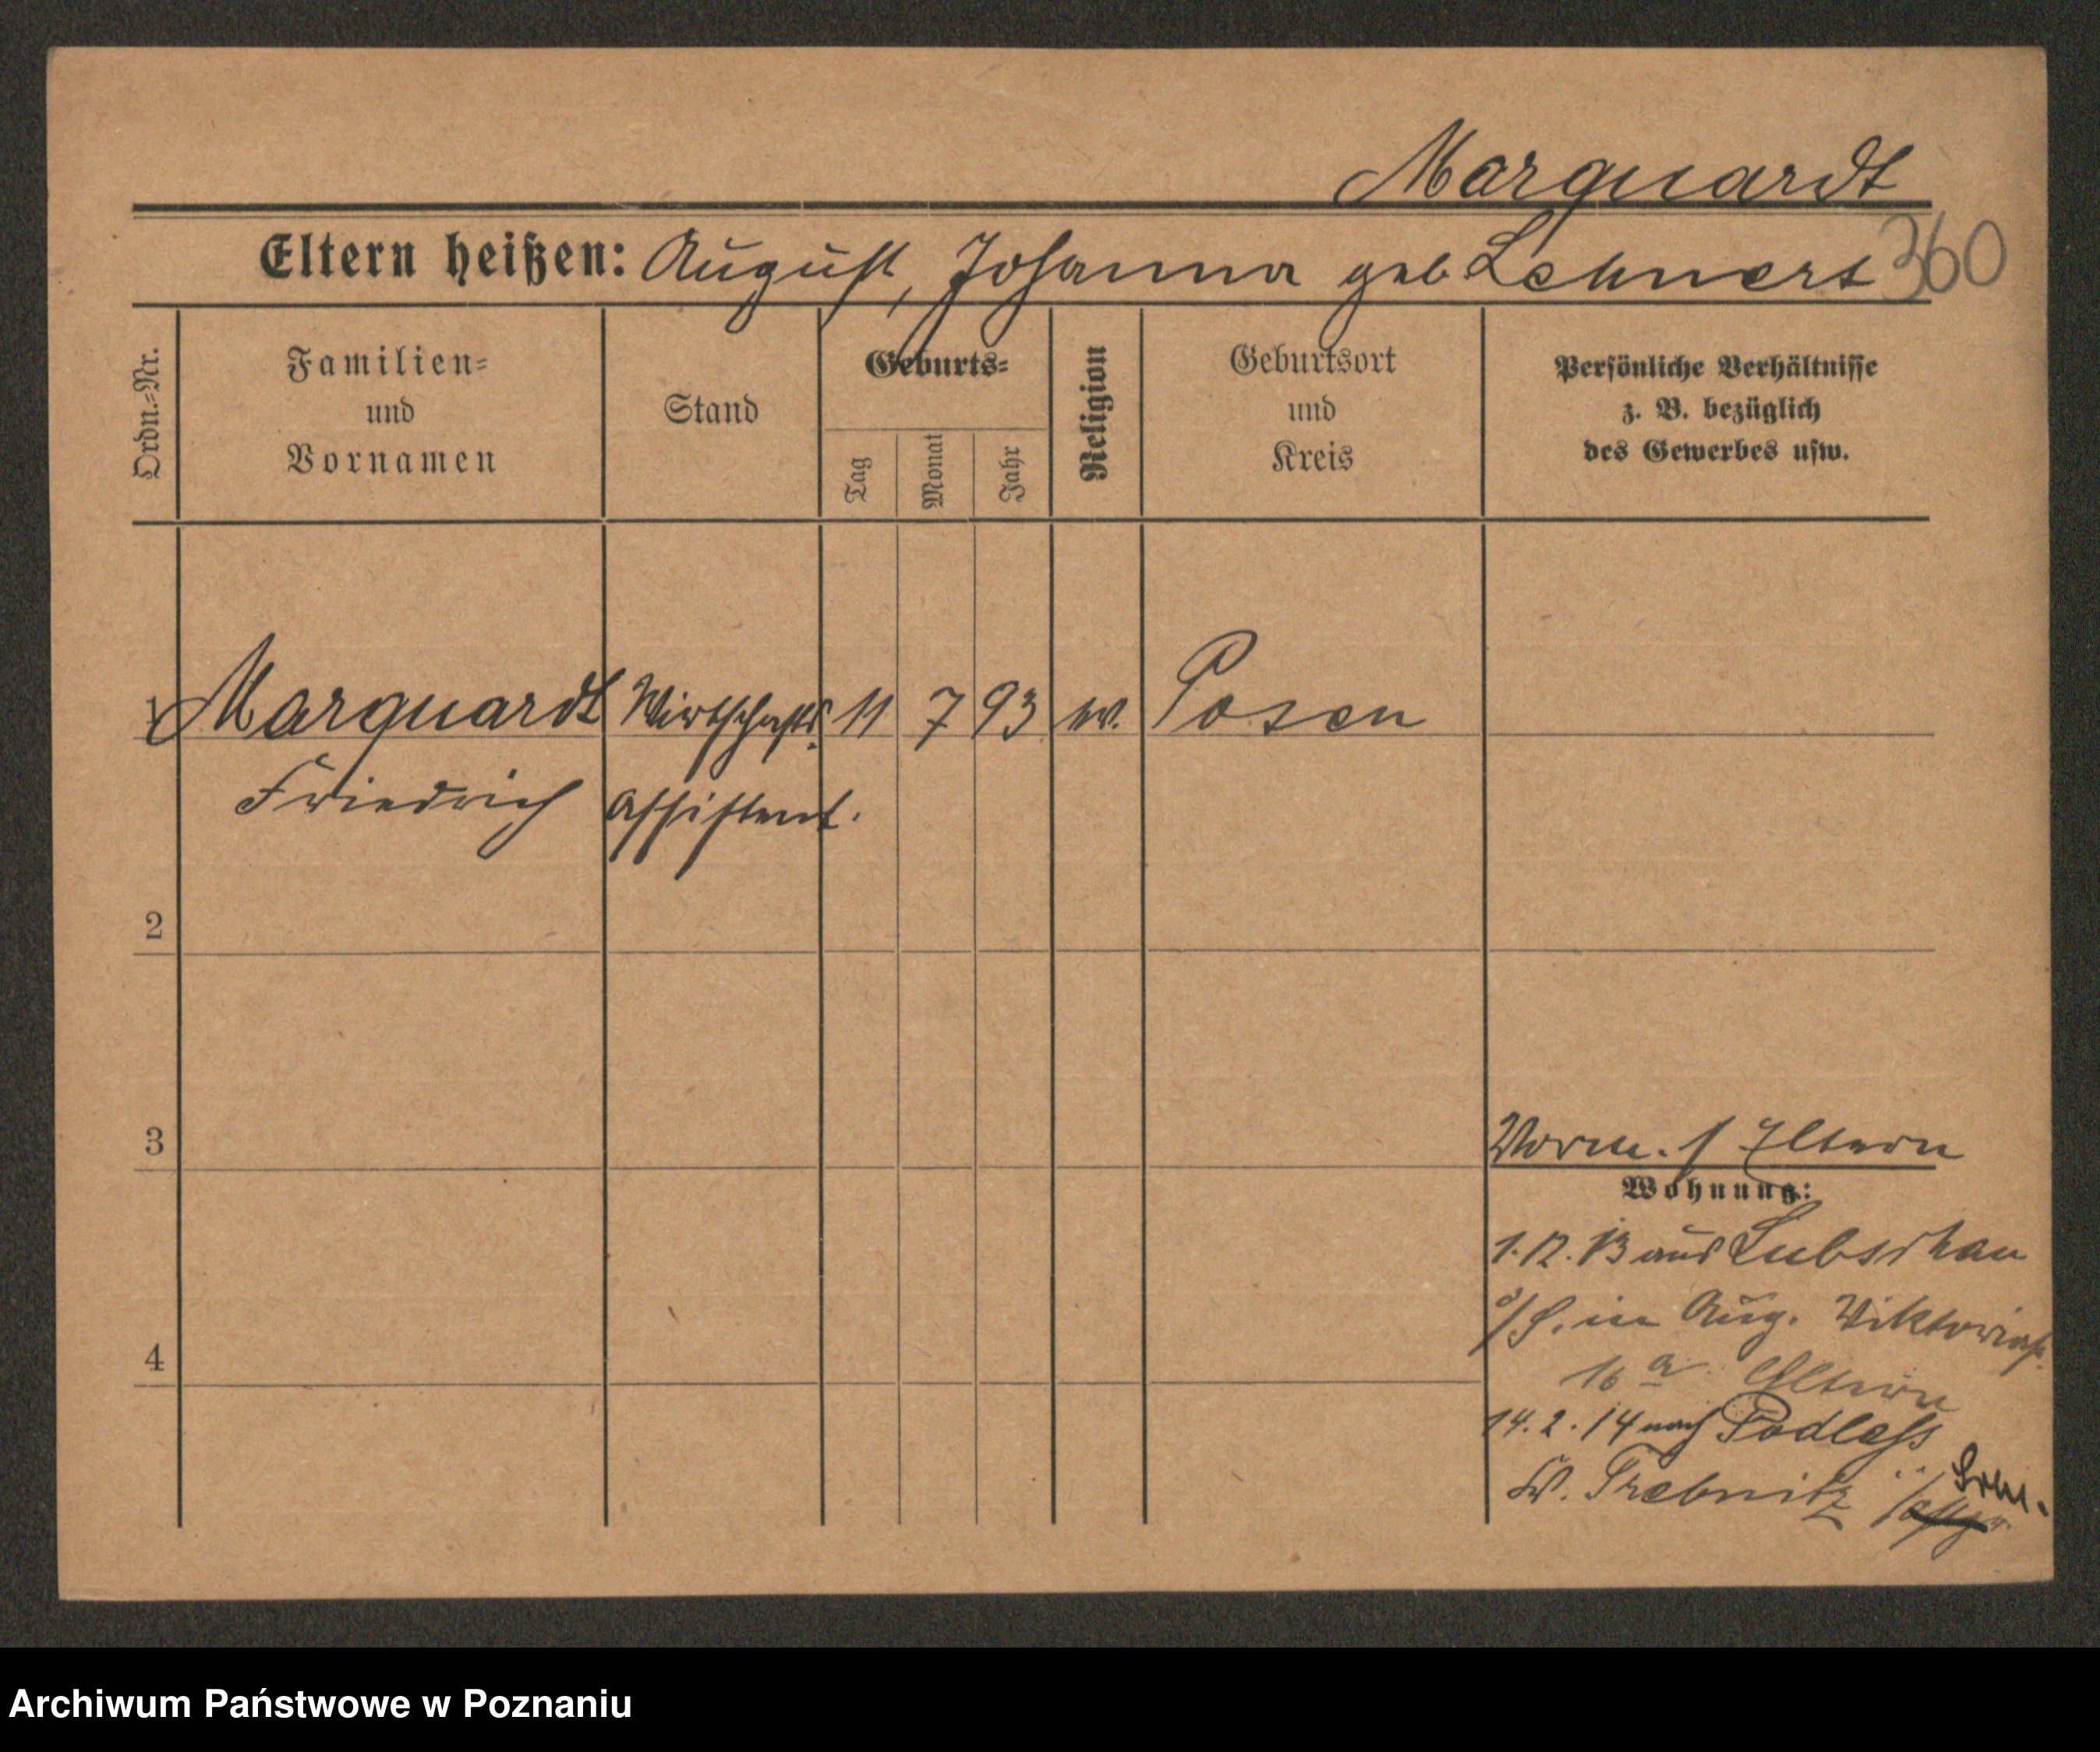 Marquardt
Eltern heißen: August, Johanna geb Lehnert 360
Ordn.=Nr.
Familien=
und
Vornamen
Stand
Geburts=
Tag
Monat
Jahr
Religion
Geburtsort
und
Kreis
Persönliche Verhältnisse
z. B. bezüglich
des Gewerbes usw.
1 Marquardt Wirtschafts. 11 7 93 ev. Posen
Friedrich Assistent.
2
3
4
Vorm. / Eltern
Wohnung:
1.12.13 aus Lubschau
in Aug. Viktoriastr.
16 a Eltern
14.2.14 nach Podless
Kr. Trebnitz
Archiwum Państwowe w Poznaniu